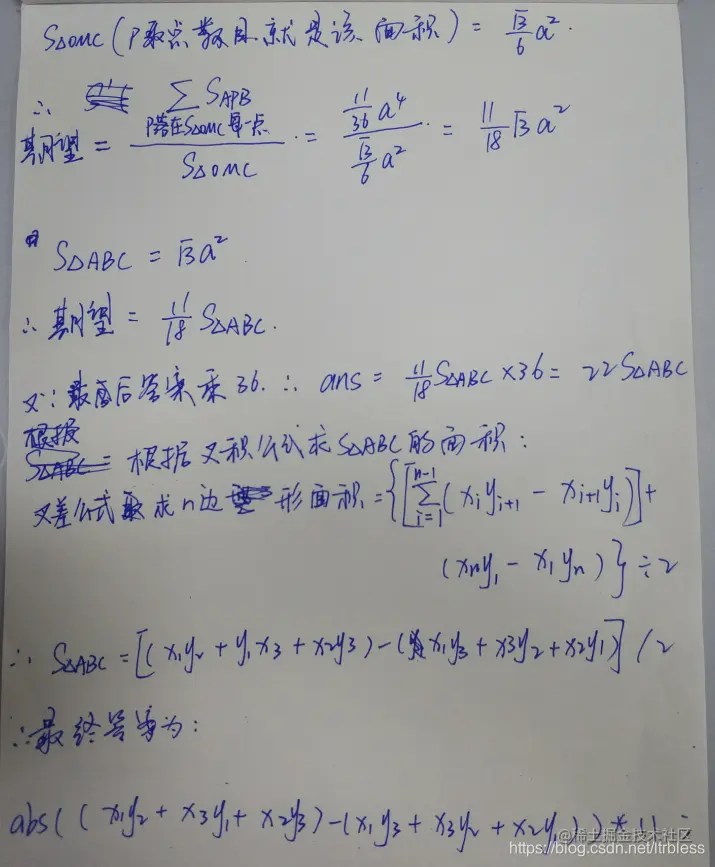 S△OMC (P取点数目就是该面积) = √3/6 a².
∴ 期望 = ∑ S△PB P落在S△OMC每一点 / S△OMC = 11/36 a⁴ / √3/6 a² = 11/18 √3 a²
S△ABC = √3 a²
∴ 期望 = 11/18 S△ABC.
又∵最后答案乘36. ∴ ans = 11/18 S△ABC × 36 = 22 S△ABC
根据
S△ABC = 根据叉积公式求S△ABC的面积:
叉差公式求n边形面积 = {[∑_{i=1}^{n-1} (xᵢyᵢ₊₁ - xᵢ₊₁yᵢ)] +
(xₙy₁ - x₁yₙ)} ÷ 2
∴ S△ABC = [(x₁y₂ + y₁x₃ + x₂y₃) - (x₁y₃ + x₃y₂ + x₂y₁)] / 2
∴最终答案为:
abs((x₁y₂ + x₃y₁ + x₂y₃) - (x₁y₃ + x₃y₂ + x₂y₁)) * 11
@稀土掘金技术社区
https://blog.csdn.net/ltrbless